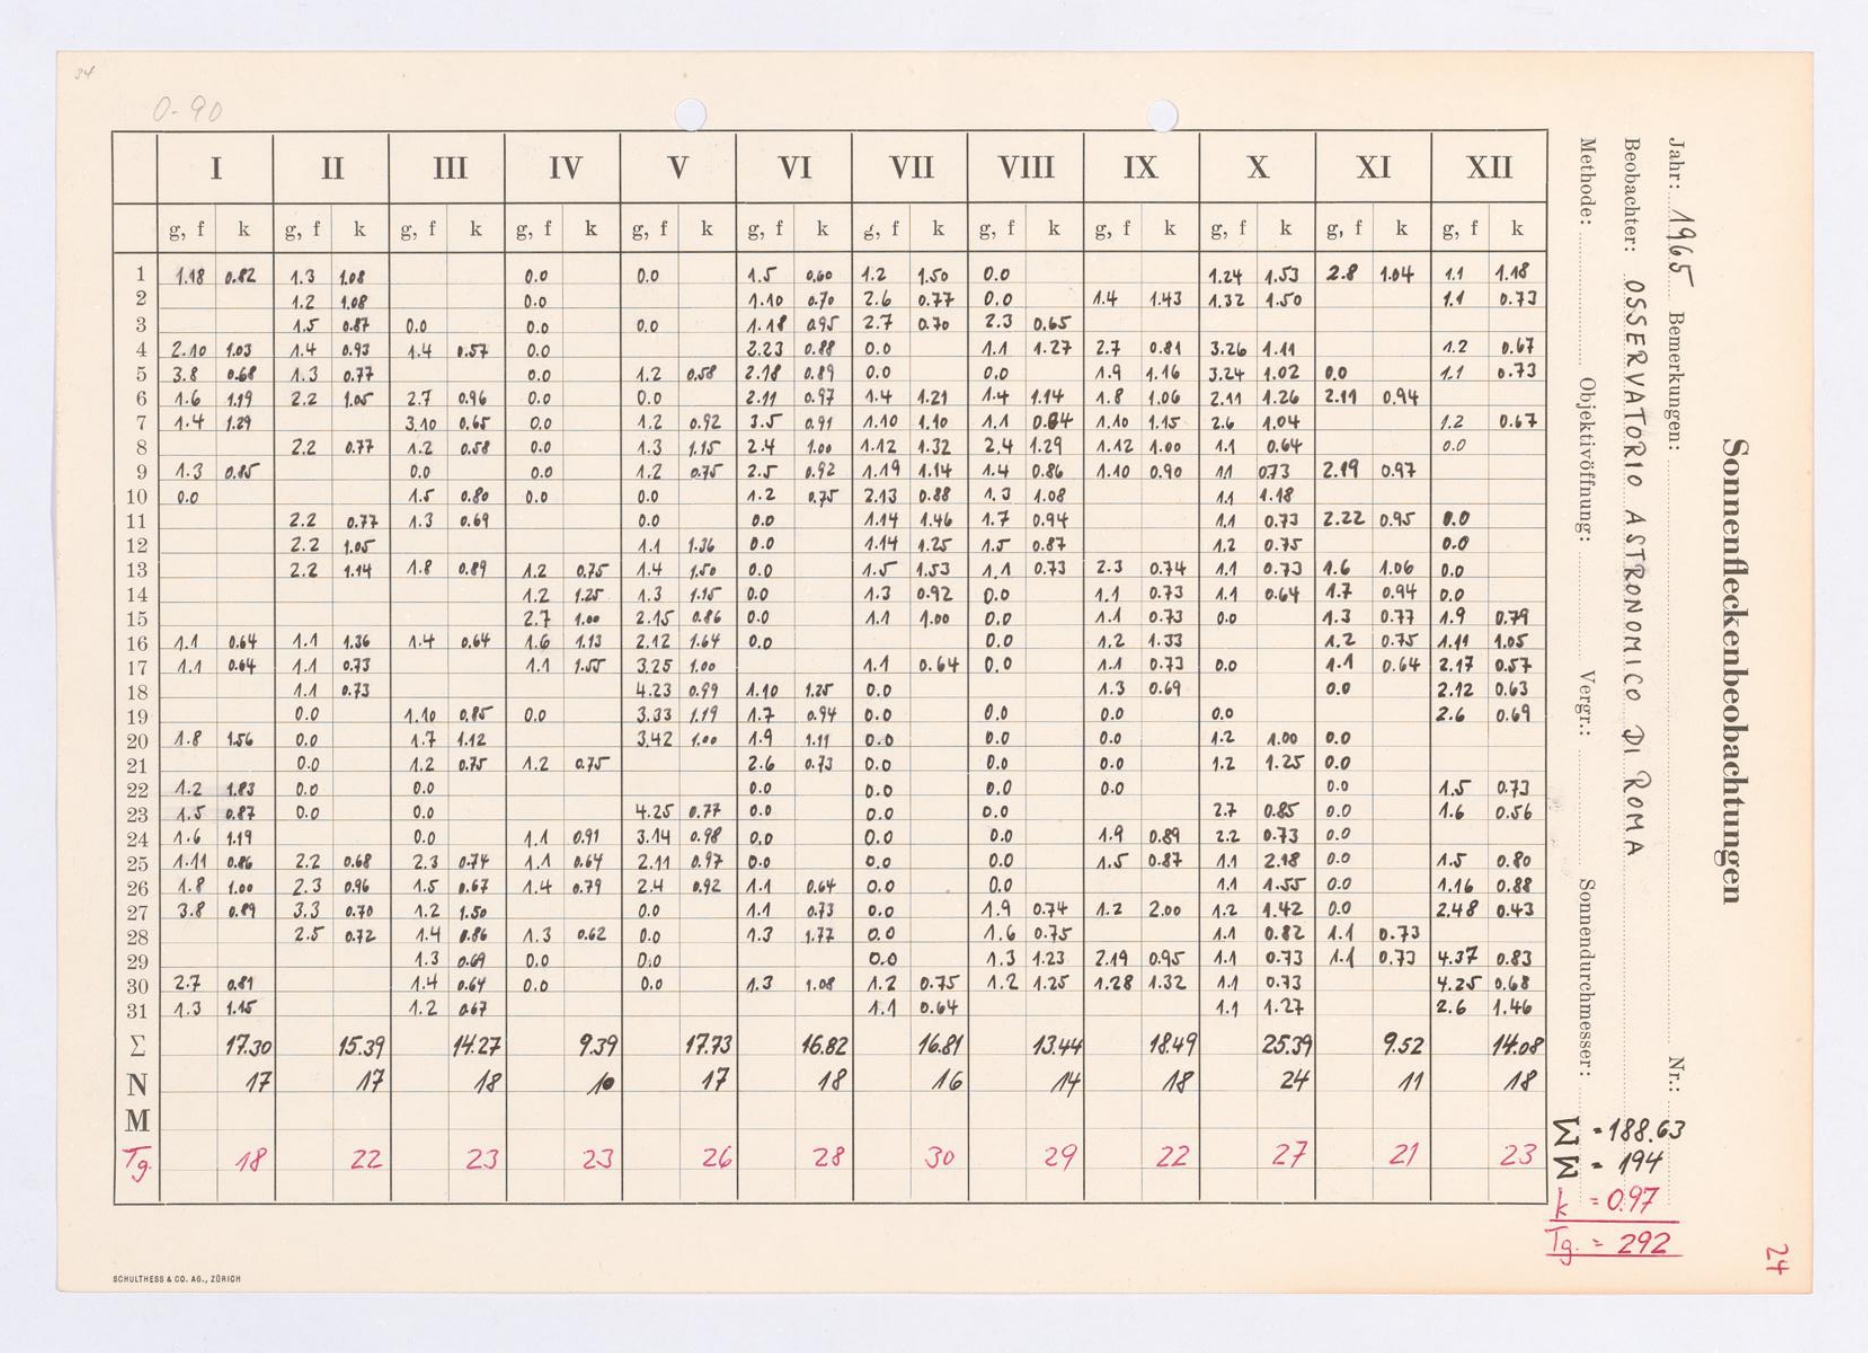 34
0-90
I II III IV V VI VII VIII IX X XI XII
g, f k g, f k g, f k g, f k g, f k g, f k g, f k g, f k g, f k g, f k g, f k g, f k
1 1.18 0.82 1.3 1.08 0.0 0.0 1.5 0.60 1.2 1.50 0.0 1.24 1.53 2.8 1.04 1.1 1.18
2 1.2 1.08 0.0 1.10 0.70 2.6 0.77 0.0 1.4 1.43 1.32 1.50 1.1 0.73
3 1.5 0.87 0.0 0.0 0.0 1.18 0.95 2.7 0.70 2.3 0.65
4 2.10 1.03 1.4 0.93 1.4 0.57 0.0 2.23 0.88 0.0 1.1 1.27 2.7 0.81 3.26 1.11 1.2 0.67
5 3.8 0.68 1.3 0.77 0.0 1.2 0.58 2.18 0.89 0.0 0.0 1.9 1.16 3.24 1.02 0.0 1.1 0.73
6 1.6 1.19 2.2 1.05 2.7 0.96 0.0 0.0 2.11 0.97 1.4 1.21 1.4 1.14 1.8 1.06 2.11 1.26 2.11 0.94
7 1.4 1.29 3.10 0.65 0.0 1.2 0.92 3.5 0.91 1.10 1.10 1.1 0.64 1.10 1.15 2.6 1.04 1.2 0.67
8 2.2 0.77 1.2 0.58 0.0 1.3 1.15 2.4 1.00 1.12 1.32 2.4 1.29 1.12 1.00 1.1 0.64 0.0
9 1.3 0.85 0.0 0.0 1.2 0.75 2.5 0.92 1.19 1.14 1.4 0.86 1.10 0.90 1.1 0.73 2.19 0.97
10 0.0 1.5 0.80 0.0 0.0 1.2 0.75 2.13 0.88 1.3 1.08 1.1 1.18
11 2.2 0.77 1.3 0.69 0.0 0.0 1.14 1.46 1.7 0.94 1.1 0.73 2.22 0.95 0.0
12 2.2 1.05 1.1 1.36 0.0 1.14 1.25 1.5 0.87 1.2 0.75 0.0
13 2.2 1.14 1.8 0.89 1.2 0.75 1.4 1.50 0.0 1.5 1.53 1.1 0.73 2.3 0.74 1.1 0.73 1.6 1.06 0.0
14 1.2 1.25 1.3 1.15 0.0 1.3 0.92 0.0 1.1 0.73 1.1 0.64 1.7 0.94 0.0
15 2.7 1.00 2.15 0.86 0.0 1.1 1.00 0.0 1.1 0.73 0.0 1.3 0.77 1.9 0.79
16 1.1 0.64 1.1 1.36 1.4 0.64 1.6 1.13 2.12 1.64 0.0 0.0 1.2 1.33 1.2 0.75 1.11 1.05
17 1.1 0.64 1.1 0.73 1.1 1.55 3.25 1.00 1.1 0.64 0.0 1.1 0.73 0.0 1.1 0.64 2.17 0.57
18 1.1 0.73 4.23 0.99 1.10 1.25 0.0 1.3 0.69 0.0 2.12 0.63
19 0.0 1.10 0.85 0.0 3.33 1.19 1.7 0.94 0.0 0.0 0.0 0.0 2.6 0.69
20 1.8 1.56 0.0 1.7 1.12 3.42 1.00 1.9 1.11 0.0 0.0 0.0 1.2 1.00 0.0
21 0.0 1.2 0.75 1.2 0.75 2.6 0.73 0.0 0.0 0.0 1.2 1.25 0.0
22 1.2 1.83 0.0 0.0 0.0 0.0 0.0 0.0 0.0 1.5 0.73
23 1.5 0.87 0.0 0.0 4.25 0.77 0.0 0.0 0.0 2.7 0.85 0.0 1.6 0.56
24 1.6 1.19 0.0 1.1 0.91 3.14 0.98 0.0 0.0 0.0 1.9 0.89 2.2 0.73 0.0
25 1.11 0.86 2.2 0.68 2.3 0.74 1.1 0.64 2.11 0.97 0.0 0.0 0.0 1.5 0.87 1.1 2.18 0.0 1.5 0.80
26 1.8 1.00 2.3 0.96 1.5 0.67 1.4 0.79 2.4 0.92 1.1 0.64 0.0 0.0 1.1 1.55 0.0 1.16 0.88
27 3.8 0.89 3.3 0.70 1.2 1.50 0.0 1.1 0.73 0.0 1.9 0.74 1.2 2.00 1.2 1.42 0.0 2.48 0.43
28 2.5 0.72 1.4 0.86 1.3 0.62 0.0 1.3 1.77 0.0 1.6 0.75 1.1 0.82 1.1 0.73
29 1.3 0.69 0.0 0.0 0.0 1.3 1.23 2.19 0.95 1.1 0.73 1.1 0.73 4.37 0.83
30 2.7 0.81 1.4 0.64 0.0 0.0 1.3 1.08 1.2 0.75 1.2 1.25 1.28 1.32 1.1 0.73 4.25 0.68
31 1.3 1.15 1.2 0.67 1.1 0.64 1.1 1.27 2.6 1.46
Σ 17.30 15.39 14.27 9.39 17.73 16.82 16.81 13.44 18.49 25.39 9.52 14.08
N 17 17 18 10 17 18 16 14 18 24 11 18
M
Tg. 18 22 23 23 26 28 30 29 22 27 21 23
Sonnenfleckenbeobachtungen
Jahr: 1965 Bemerkungen: Nr.:
Beobachter: OSSERVATORIO ASTRONOMICO DI ROMA
Methode: Objektivöffnung: Vergr.: Sonnendurchmesser:
Σ = 188.63
Σ = 194
k = 0.97
Tg. = 292
24
SCHULTHESS & CO. AG., ZÜRICH